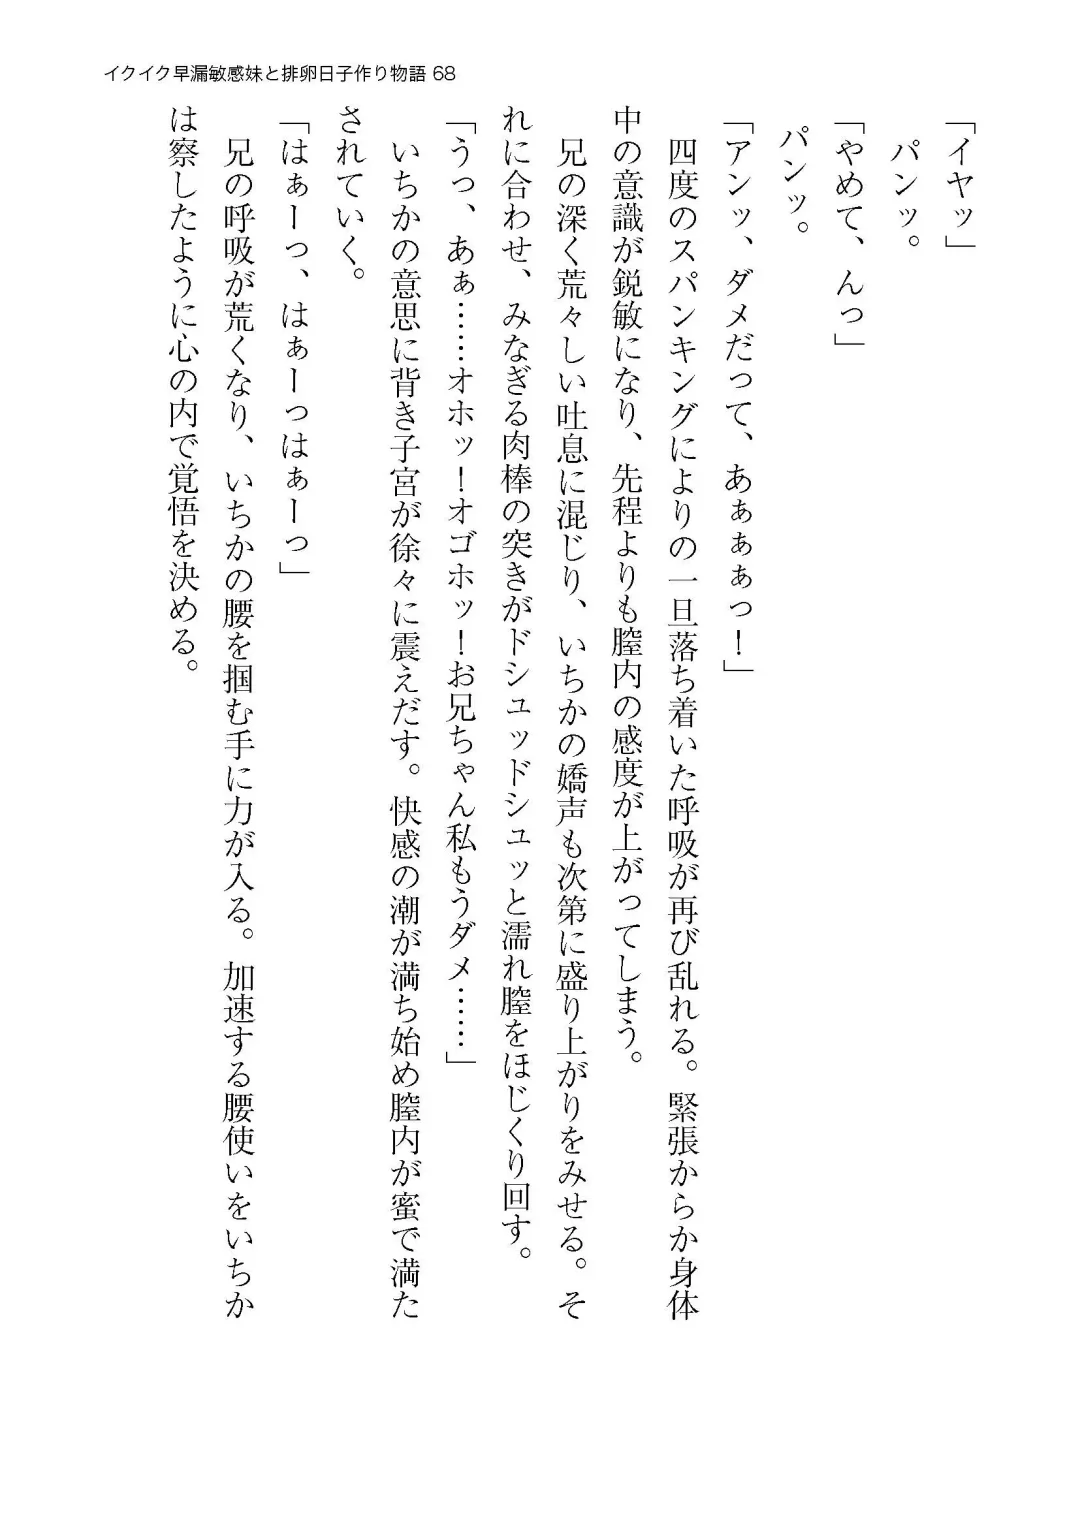 イクイク早漏敏感妹と排卵日子作り物語 68
「イヤッ」
パンッ。
「やめて、んっ」
パンッ。
「アンッ、ダメだって、あぁぁぁっ！」
四度のスパンキングによりの一旦落ち着いた呼吸が再び乱れる。緊張からか身体
中の意識が鋭敏になり、先程よりも膣内の感度が上がってしまう。
兄の深く荒々しい吐息に混じり、いちかの嬌声も次第に盛り上がりをみせる。そ
れに合わせ、みなぎる肉棒の突きがドシュッドシュッと濡れ膣をほじくり回す。
「うっ、あぁ……オホッ！オゴホッ！お兄ちゃん私もうダメ……」
いちかの意思に背き子宮が徐々に震えだす。快感の潮が満ち始め膣内が蜜で満た
されていく。
「はぁーっ、はぁーっはぁーっ」
兄の呼吸が荒くなり、いちかの腰を掴む手に力が入る。加速する腰使いをいちか
は察したように心の内で覚悟を決める。